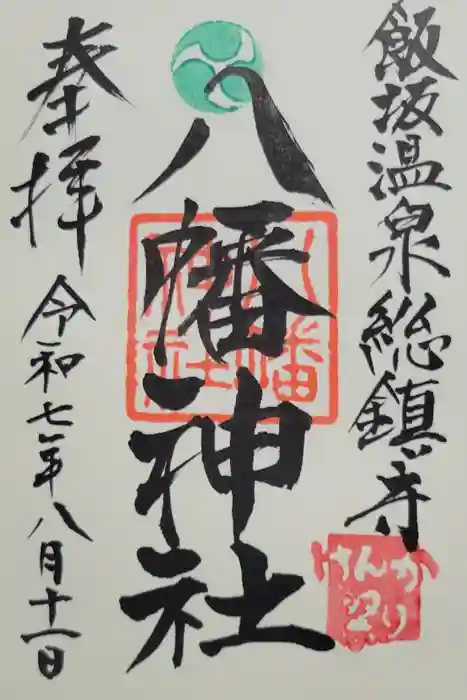 飯坂温泉総鎮守
八幡神社
奉拝
令和七年八月十一日
八幡
神社
けんか
祭り